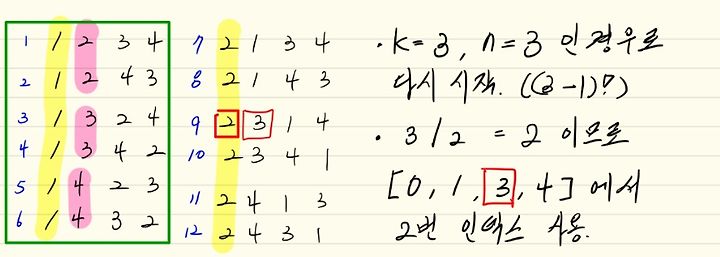 1 1 2 3 4
2 1 2 4 3
3 1 3 2 4
4 1 3 4 2
5 1 4 2 3
6 1 4 3 2
7 2 1 3 4
8 2 1 4 3
9 2 3 1 4
10 2 3 4 1
11 2 4 1 3
12 2 4 3 1
· k=3, n=3 인 경우로
다시 시작. ((3-1)!)
· 3/2 = 2 이므로
[0, 1, 3, 4] 에서
2번 인덱스 사용.